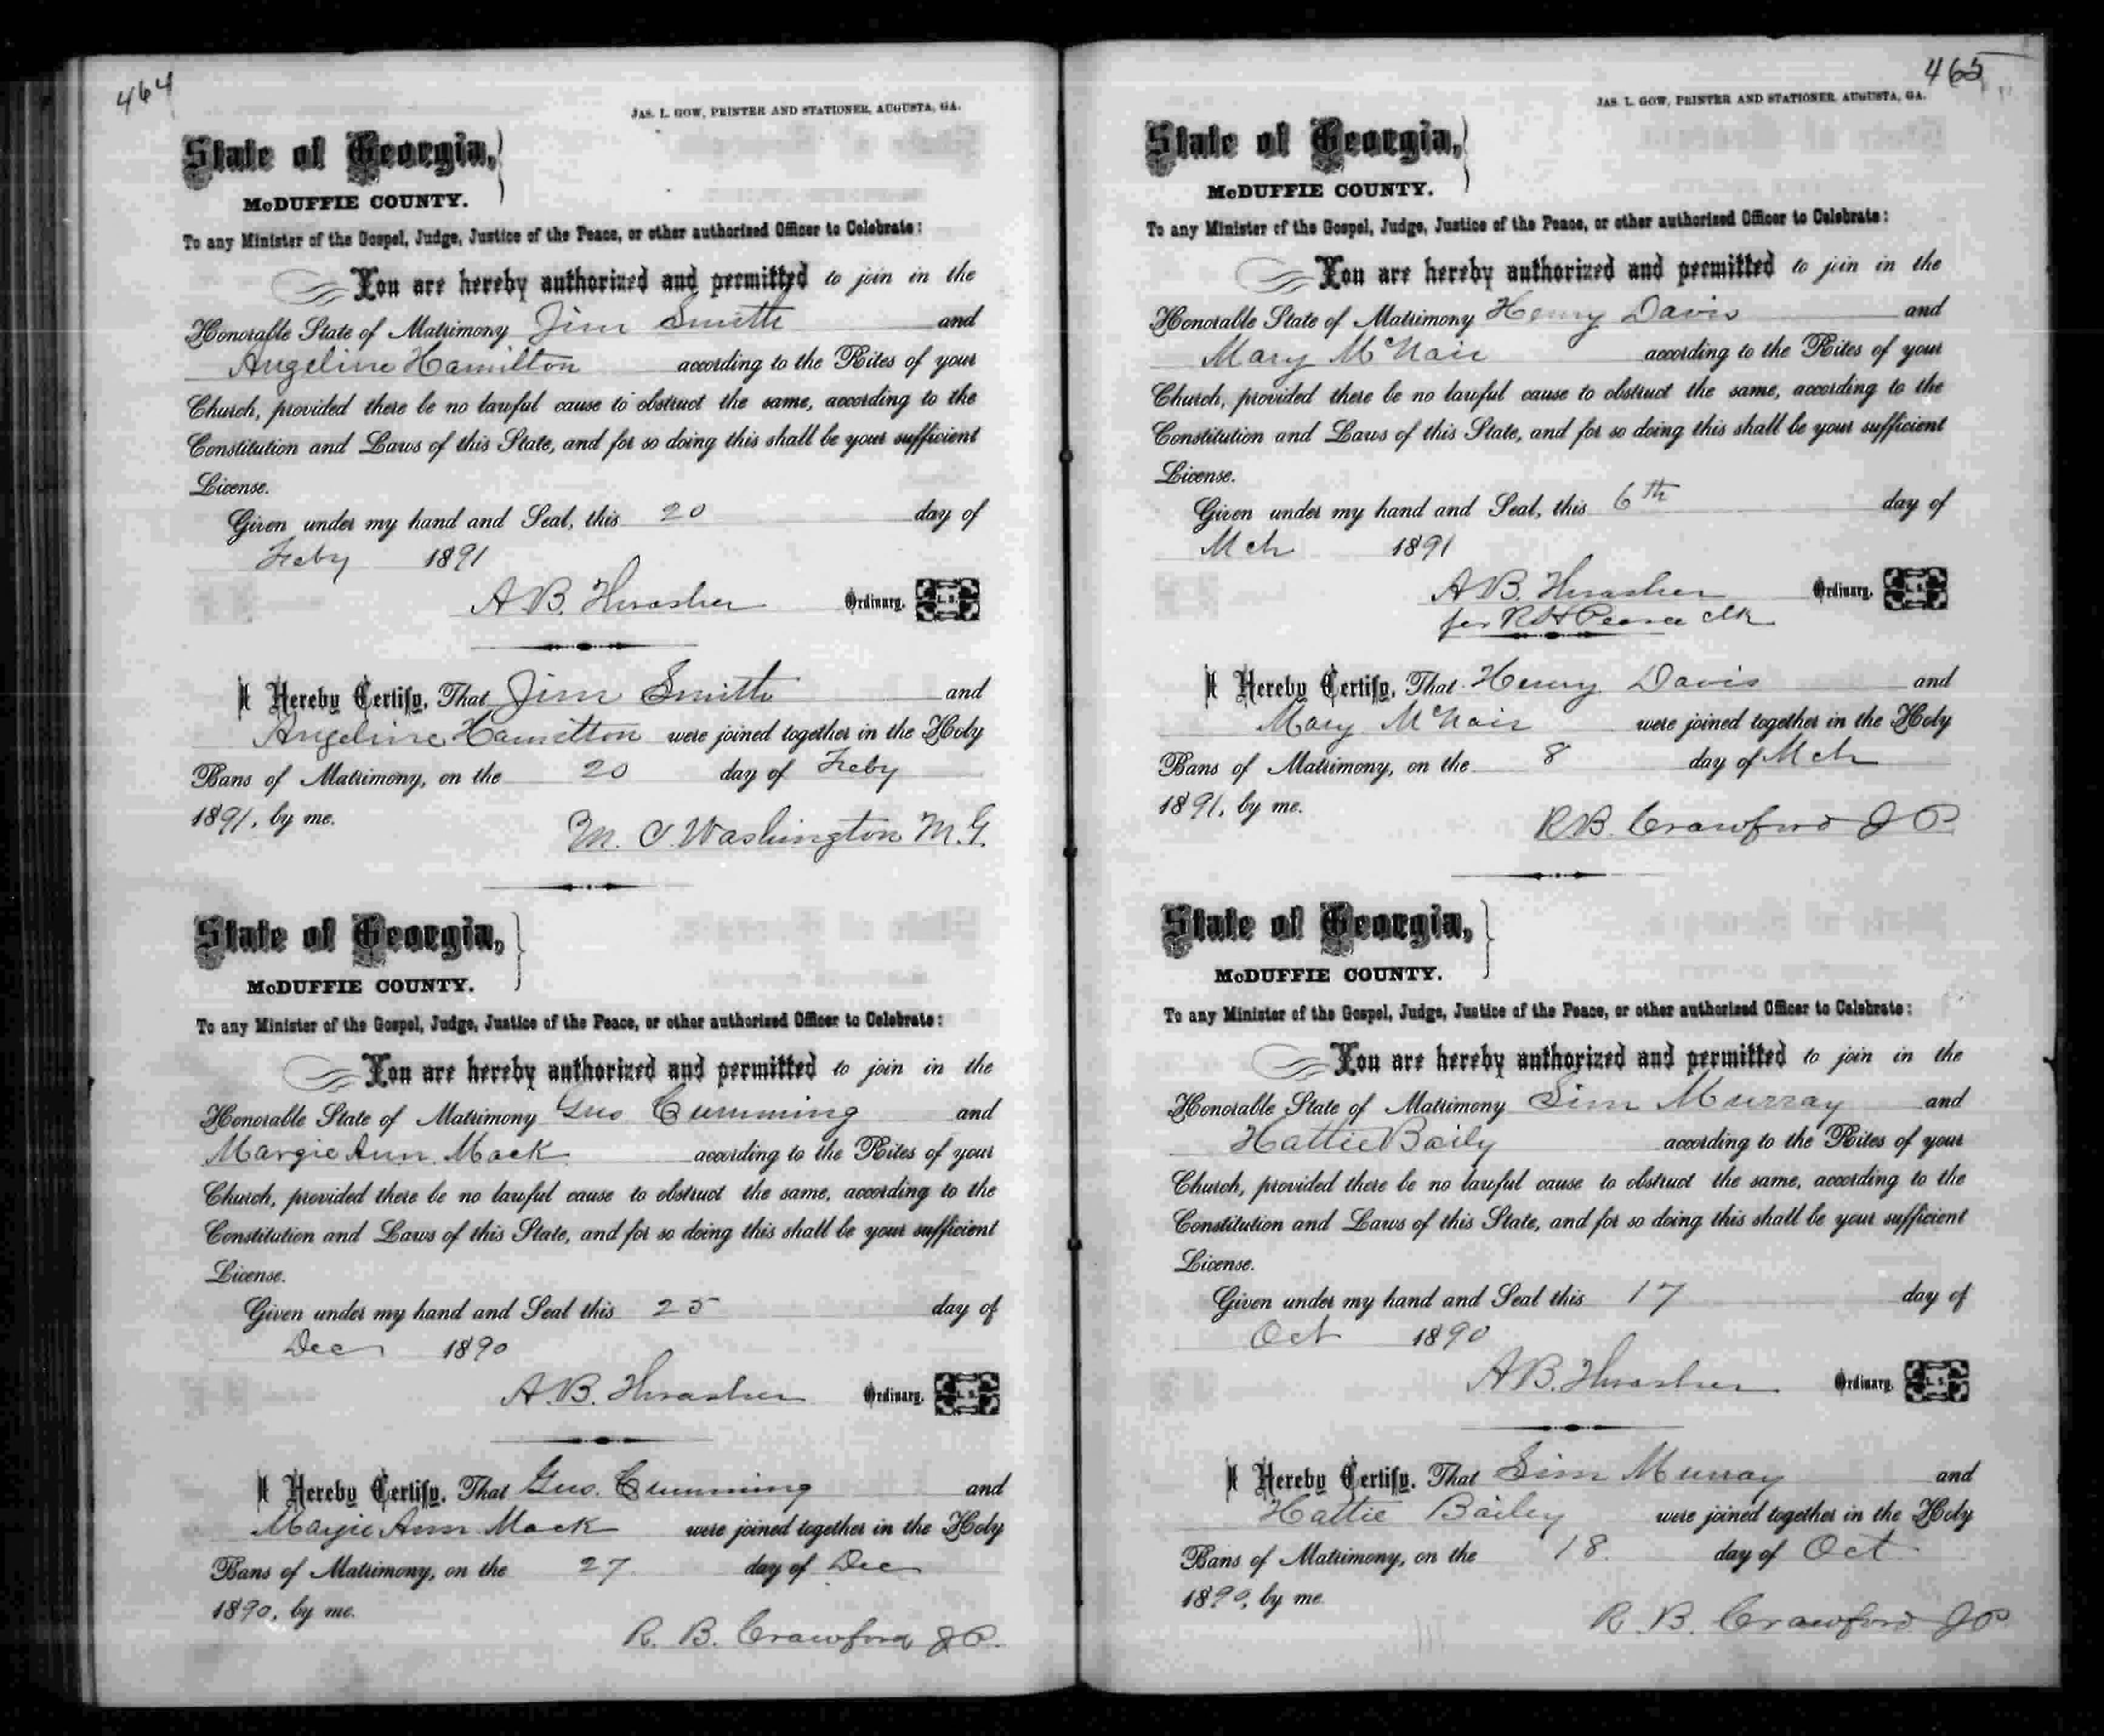 464
JAS. L. GOW, PRINTER AND STATIONER, AUGUSTA, GA.
State of Georgia,
McDUFFIE COUNTY.
To any Minister of the Gospel, Judge, Justice of the Peace, or other authorized Officer to Celebrate:
You are hereby authorized and permitted to join in the
Honorable State of Matrimony Jim Smith and
Angeline Hamilton according to the Rites of your
Church, provided there be no lawful cause to obstruct the same, according to the
Constitution and Laws of this State, and for so doing this shall be your sufficient
License.
Given under my hand and Seal, this 20 day of
Feby 1891
A B. Thrasher Ordinary. L. S.
I Hereby Certify, That Jim Smith and
Angeline Hamilton were joined together in the Holy
Bans of Matrimony, on the 20 day of Feby
1891, by me.
M. C. Washington M.G.
State of Georgia,
McDUFFIE COUNTY.
To any Minister of the Gospel, Judge, Justice of the Peace, or other authorized Officer to Celebrate:
You are hereby authorized and permitted to join in the
Honorable State of Matrimony Gus Cumming and
Margie Ann Mack according to the Rites of your
Church, provided there be no lawful cause to obstruct the same, according to the
Constitution and Laws of this State, and for so doing this shall be your sufficient
License.
Given under my hand and Seal this 25 day of
Dec 1890
A.B. Thrasher Ordinary. L. S.
I Hereby Certify, That Gus. Cumming and
Margie Ann Mack were joined together in the Holy
Bans of Matrimony, on the 27 day of Dec
1890, by me.
R. B. Crawford J.P.
465
JAS. L. GOW, PRINTER AND STATIONER, AUGUSTA, GA.
State of Georgia,
McDUFFIE COUNTY.
To any Minister of the Gospel, Judge, Justice of the Peace, or other authorized Officer to Celebrate:
You are hereby authorized and permitted to join in the
Honorable State of Matrimony Henry Davis and
Mary McNair according to the Rites of your
Church, provided there be no lawful cause to obstruct the same, according to the
Constitution and Laws of this State, and for so doing this shall be your sufficient
License.
Given under my hand and Seal, this 6th day of
Mch 1891
A B. Thrasher Ordinary. L. S.
for R H Pearce clk
I Hereby Certify, That Henry Davis and
Mary McNair were joined together in the Holy
Bans of Matrimony, on the 8 day of Mch
1891, by me.
R B. Crawford J P.
State of Georgia,
McDUFFIE COUNTY.
To any Minister of the Gospel, Judge, Justice of the Peace, or other authorized Officer to Celebrate:
You are hereby authorized and permitted to join in the
Honorable State of Matrimony Sim Murray and
Hattie Baily according to the Rites of your
Church, provided there be no lawful cause to obstruct the same, according to the
Constitution and Laws of this State, and for so doing this shall be your sufficient
License.
Given under my hand and Seal this 17 day of
Oct 1890
A B. Thrasher Ordinary. L. S.
I Hereby Certify, That Sim Murray and
Hattie Bailey were joined together in the Holy
Bans of Matrimony, on the 18. day of Oct
1890, by me.
R. B. Crawford J P.